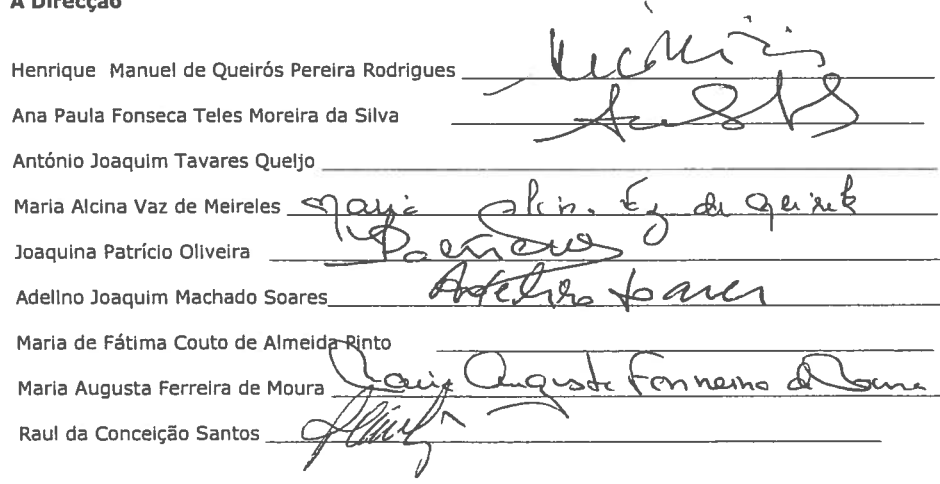 A Direcção
Henrique Manuel de Queirós Pereira Rodrigues
Ana Paula Fonseca Teles Moreira da Silva
António Joaquim Tavares Queijo
Maria Alcina Vaz de Meireles Maria
Joaquina Patrício Oliveira
Adelino Joaquim Machado Soares Adelino Soares
Maria de Fátima Couto de Almeida Pinto
Maria Augusta Ferreira de Moura Maria Augusta Ferreira de Moura
Raul da Conceição Santos